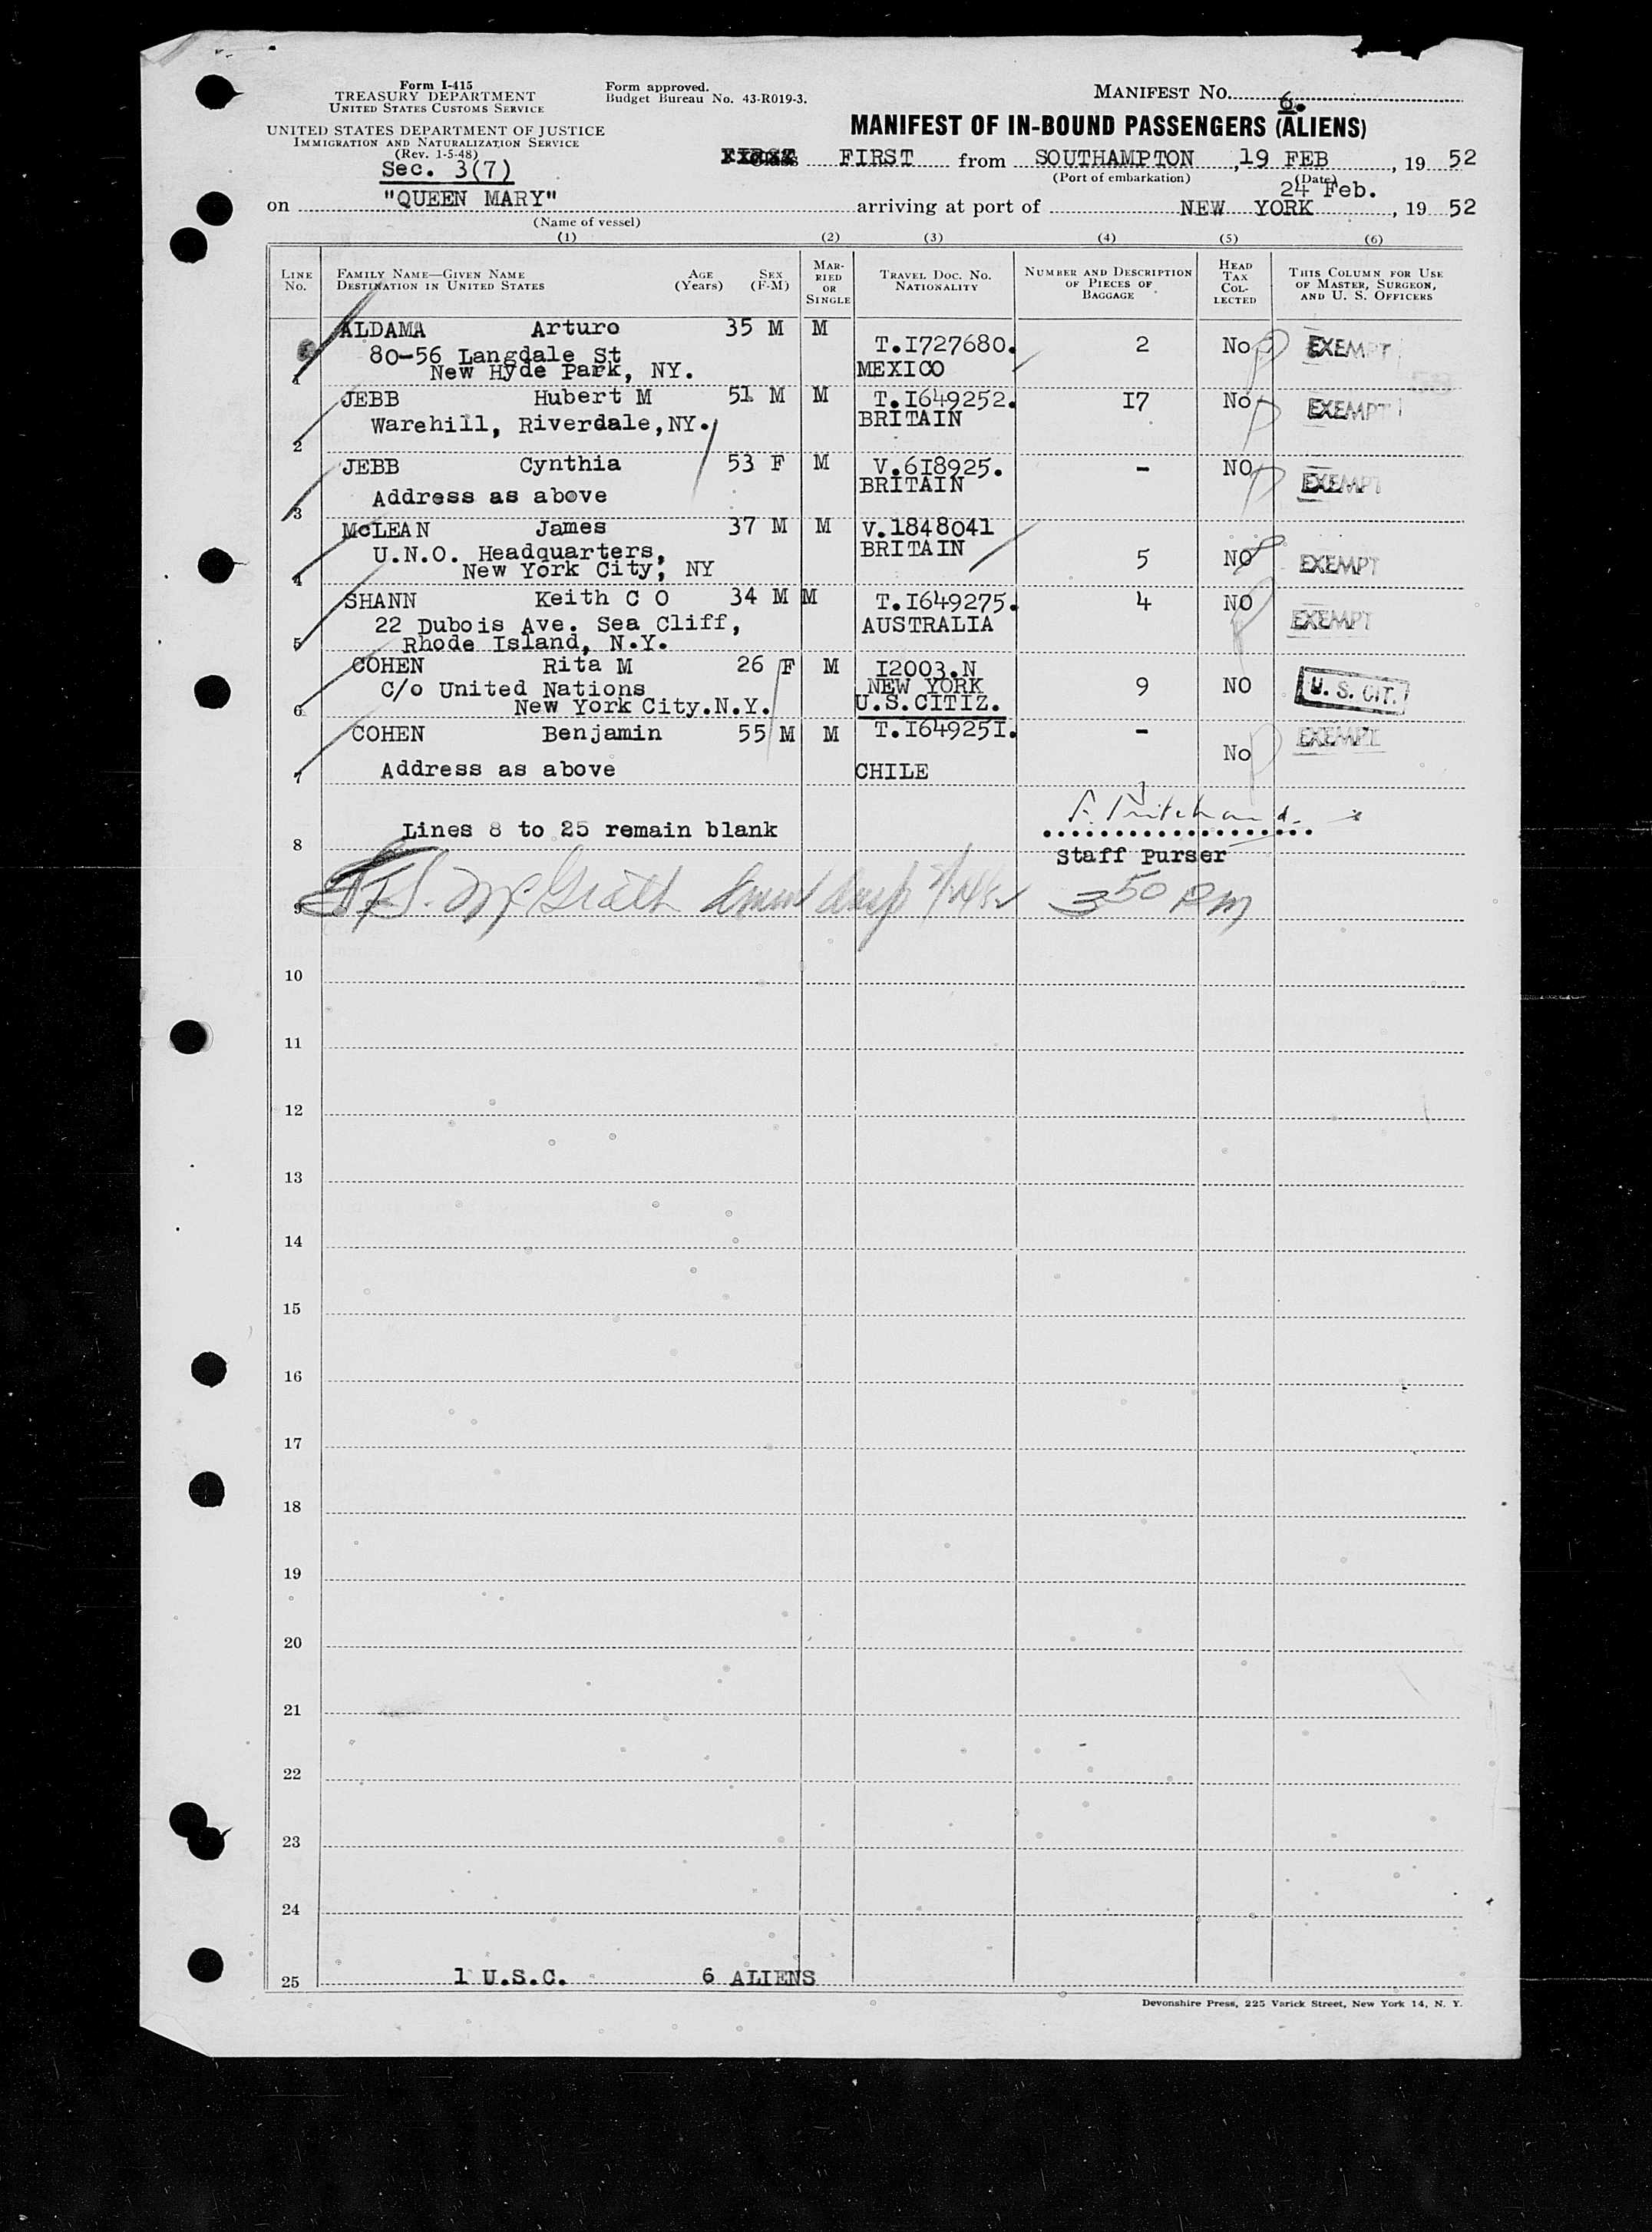 Form I-415
TREASURY DEPARTMENT
UNITED STATES CUSTOMS SERVICE
UNITED STATES DEPARTMENT OF JUSTICE
IMMIGRATION AND NATURALIZATION SERVICE
(Rev. 1-5-48)
Sec. 3(7)
Form approved.
Budget Bureau No. 43-R019-3.
MANIFEST NO. 6.
MANIFEST OF IN-BOUND PASSENGERS (ALIENS)
Class FIRST from SOUTHAMPTON, 19 FEB, 19 52
(Port of embarkation) (Date)
24 Feb.
on "QUEEN MARY" arriving at port of NEW YORK, 19 52
(Name of vessel)
(1) (2) (3) (4) (5) (6)
LINE NO.
FAMILY NAME—GIVEN NAME
DESTINATION IN UNITED STATES
AGE (Years)
SEX (F-M)
MARRIED OR SINGLE
TRAVEL DOC. NO.
NATIONALITY
NUMBER AND DESCRIPTION OF PIECES OF BAGGAGE
HEAD TAX COLLECTED
THIS COLUMN FOR USE OF MASTER, SURGEON, AND U. S. OFFICERS
ALDAMA Arturo 35 M M T.I727680. 2 No EXEMPT
80-56 Langdale St
1 New Hyde Park, NY. MEXICO
JEBB Hubert M 51 M M T.I649252. I7 No EXEMPT
Warehill, Riverdale,NY. BRITAIN
2
JEBB Cynthia 53 F M V.6I8925. - NO EXEMPT
BRITAIN
3 Address as above
McLEAN James 37 M M V.1848041 5 NO EXEMPT
U.N.O. Headquarters, BRITAIN
4 New York City, NY
SHANN Keith C O 34 M M T.I649275. 4 NO EXEMPT
22 Dubois Ave. Sea Cliff, AUSTRALIA
5 Rhode Island, N.Y.
COHEN Rita M 26 F M I2003.N 9 NO U. S. CIT.
C/o United Nations NEW YORK
6 New York City.N.Y. U.S.CITIZ.
COHEN Benjamin 55 M M T.I64925I. - No EXEMPT
7 Address as above CHILE
8 Lines 8 to 25 remain blank
Staff Purser
9 McGrath 3 50 PM
10
11
12
13
14
15
16
17
18
19
20
21
22
23
24
25 1 U.S.C. 6 ALIENS
Devonshire Press, 225 Varick Street, New York 14, N. Y.